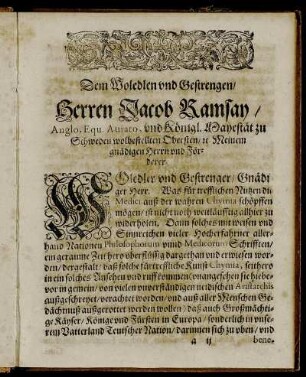 Dem Woledlen vnd Gestrengen/
Herren Jacob Ramsay/
Anglo. Equ. Aurato, vnd Königl. Mayestät zu
Schweden wolbestelltem Obersten/ Meinem
gnädigen Herrn vnd För-
derer.
WOledler vnd Gestrenger/ Gnädi-
ger Herr. Was für trefflichen Nutzen die
Medici auß der wahren Chymia schöpffen
mögen/ ist nicht noth weitläufftig allhier zu
wiederholen. Dann solches mit weisen vnd
Sinnreichen vieler Hocherfahrner aller-
hand Nationen Philosophorum vnnd Medicorum Schrifften/
ein geraume Zeit hero vberflüssig dargethan vnd erwiesen wor-
den/ dergestalt/ daß solche fürtreffliche Kunst Chymia, seithero
in ein solches Ansehen vnd ruff kommen/ vnangesehen sie hiebe-
vor in gemein/ von vielen vnverständigen neidischen
außgeschryet/ verachtet worden/ vnd auß aller Menschen Ge-
dächtnuß außgerottet werden wollen/ daß auch Großmächti-
ge Käyser/ Könige vnd Fürsten in Europa/ sonderlich in vnse-
rem Vatterland Teutscher Nation/ darinnen sich zu vben/ vnd
a ij bene.